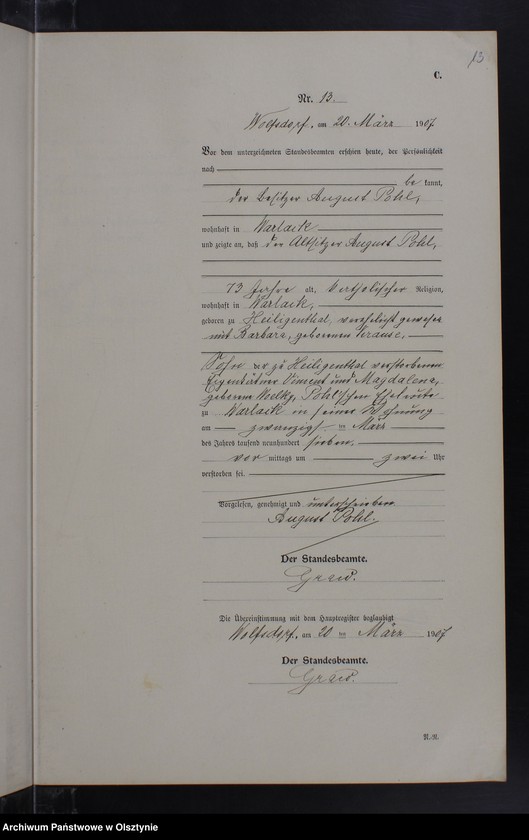 13
C.
Nr. 13.
Wolfsdorf, am 20. März 1907.
Vor dem unterzeichneten Standesbeamten erschien heute, der Persönlichkeit
nach
be kannt,
der Besitzer August Pohl,
wohnhaft in Warlack
und zeigte an, daß der Altsitzer August Pohl,
73 Jahre alt, katholischer Religion,
wohnhaft in Warlack,
geboren zu Heiligenthal, verehelicht gewesen
mit Barbara, geborenen Krause,
Sohn der zu Heiligenthal verstorbenen
Eigentümer Vincent und Magdalena,
geborene Woelky, Pohl'schen Eheleute
zu Warlack in seiner Wohnung
am zwanzigsten März
des Jahres tausend neunhundert sieben
vor mittags um zwei Uhr
verstorben sei.
Vorgelesen, genehmigt und unterschrieben
August Pohl.
Der Standesbeamte.
Graw.
Die Übereinstimmung mit dem Hauptregister beglaubigt
Wolfsdorf, am 20 ten März 1907
Der Standesbeamte.
Graw.
Archiwum Państwowe w Olsztynie